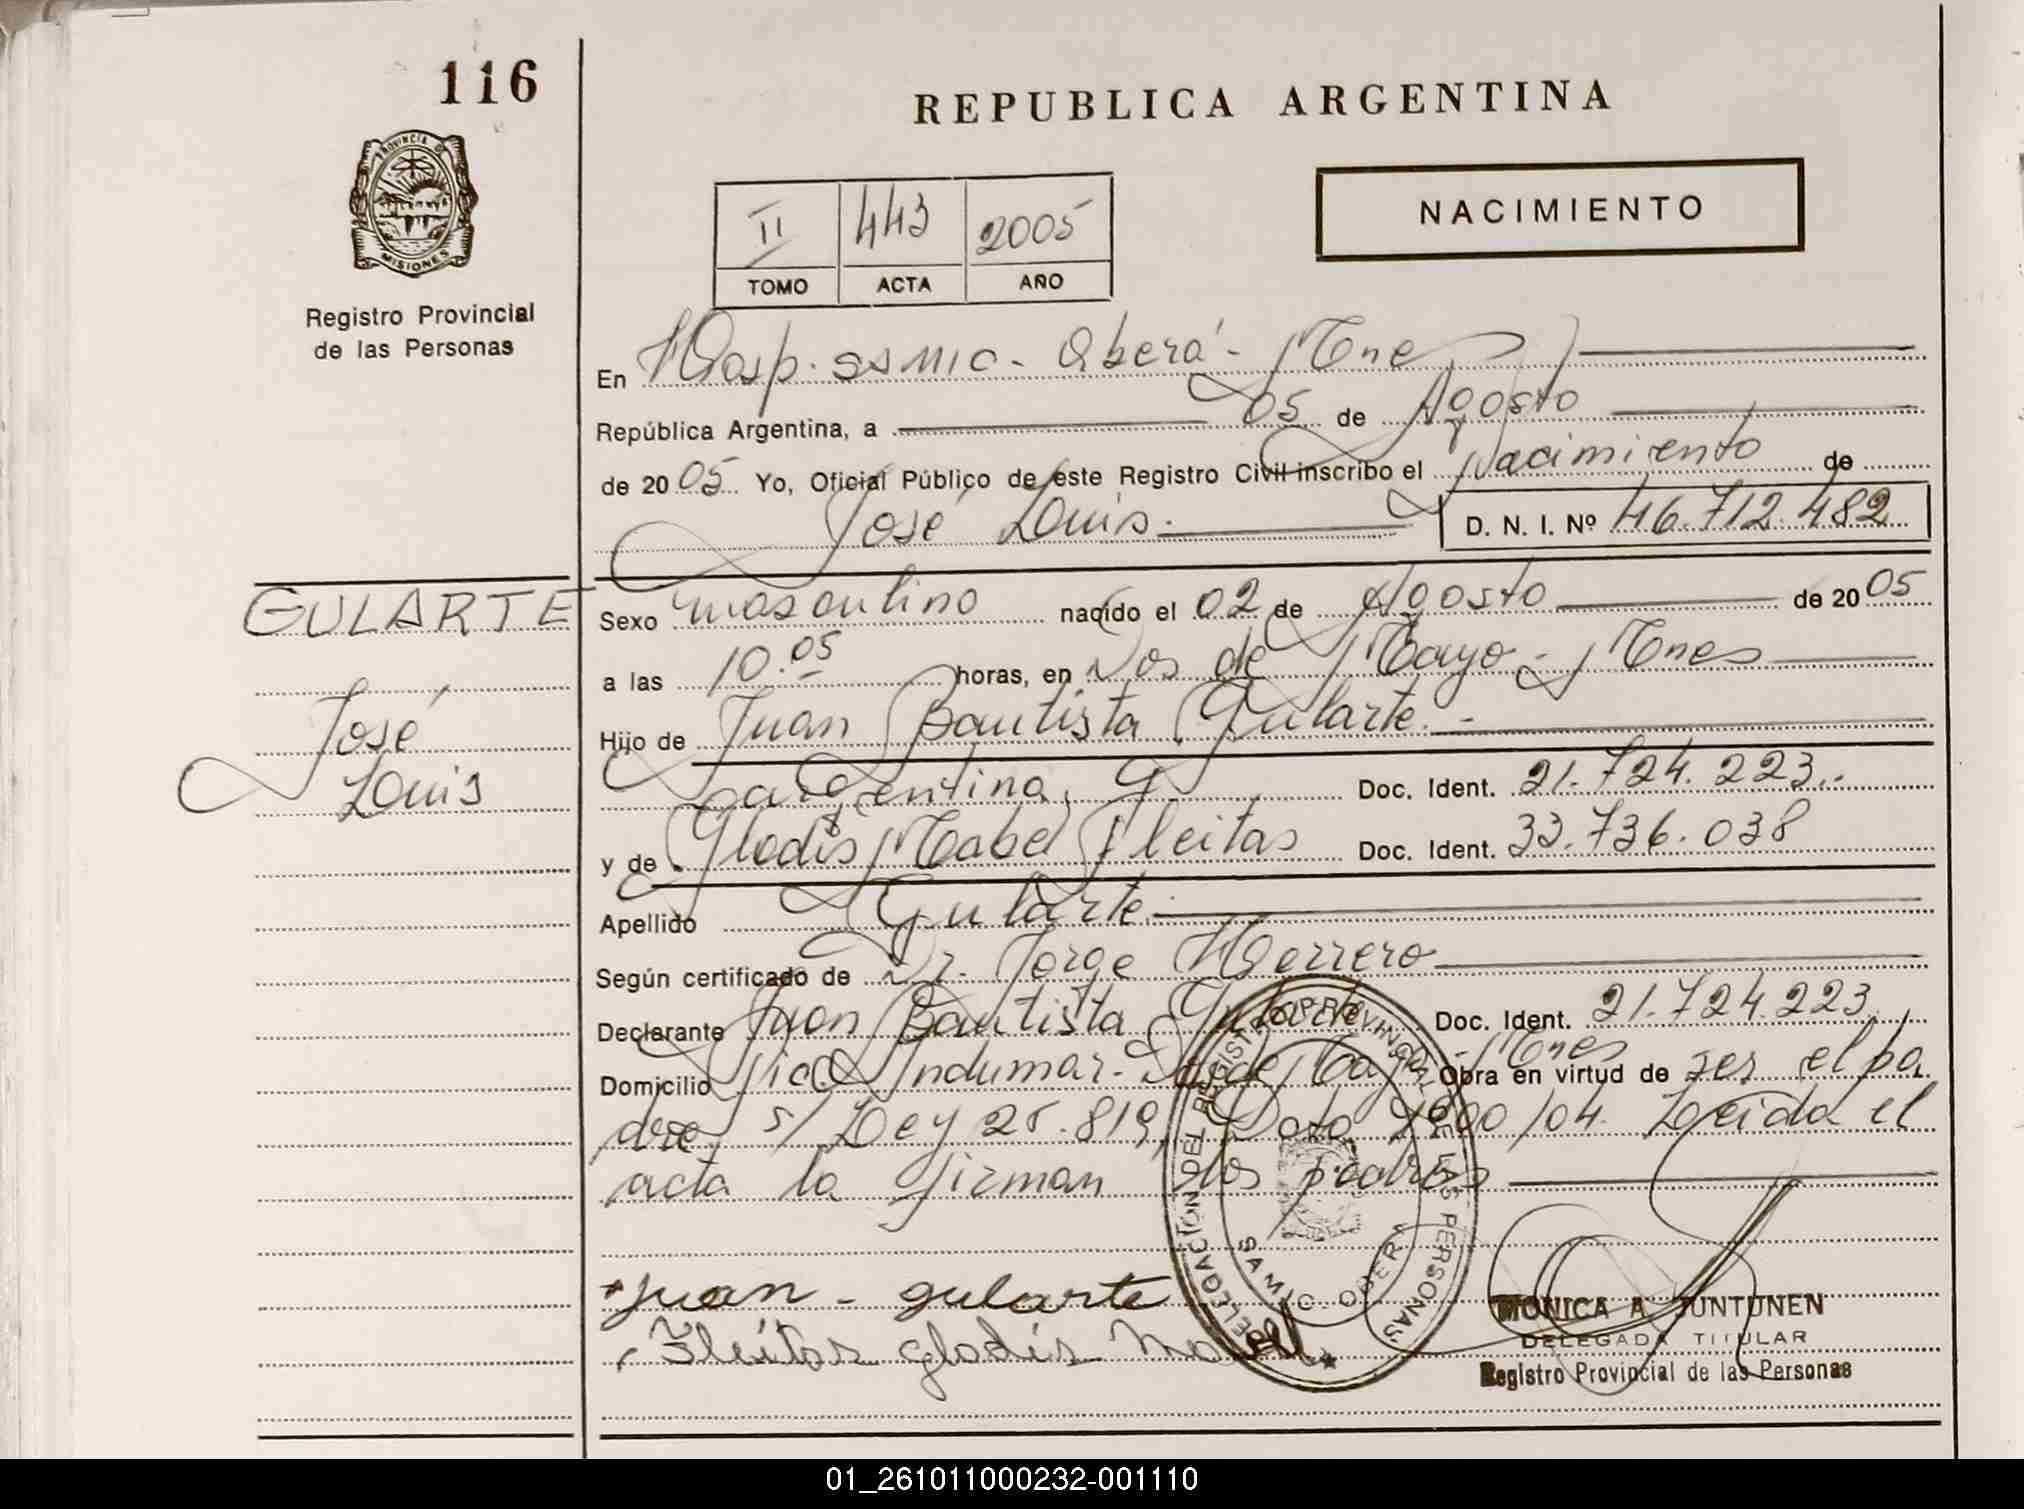 116
REPUBLICA ARGENTINA
PROVINCIA DE MISIONES
Registro Provincial
de las Personas
II 443 2005
TOMO ACTA AÑO
NACIMIENTO
En Hosp. SAMIC - Oberá - Mnes
República Argentina, a 05 de Agosto
de 2005 Yo, Oficial Público de este Registro Civil inscribo el Nacimiento de
José Luis.
D. N. I. Nº 46.712.482
GULARTE
José
Luis
Sexo masculino nacido el 02 de Agosto de 2005
a las 10.05 horas, en Dos de Mayo - Mnes
Hijo de Juan Bautista Gularte.-
argentina, Doc. Ident. 21.724.223.-
y de Gladis Mabel Fleitas Doc. Ident. 33.736.038
Apellido Gularte.
Según certificado de Dr. Jorge Herrero
Declarante Juan Bautista Gularte Doc. Ident. 21.724.223
Domicilio Indumar - Dos de Mayo - Mnes Obra en virtud de ser el pa
dre s/ Ley 25.819, 04. Leída el
acta la firman los padres
Juan - gularte
Fleitas gladis Mabel
DELEGACION DEL REGISTRO PROVINCIAL DE LAS PERSONAS
SAMIC - OBERA
MONICA A. JUNTUNEN
DELEGADA TITULAR
Registro Provincial de las Personas
01_261011000232-001110